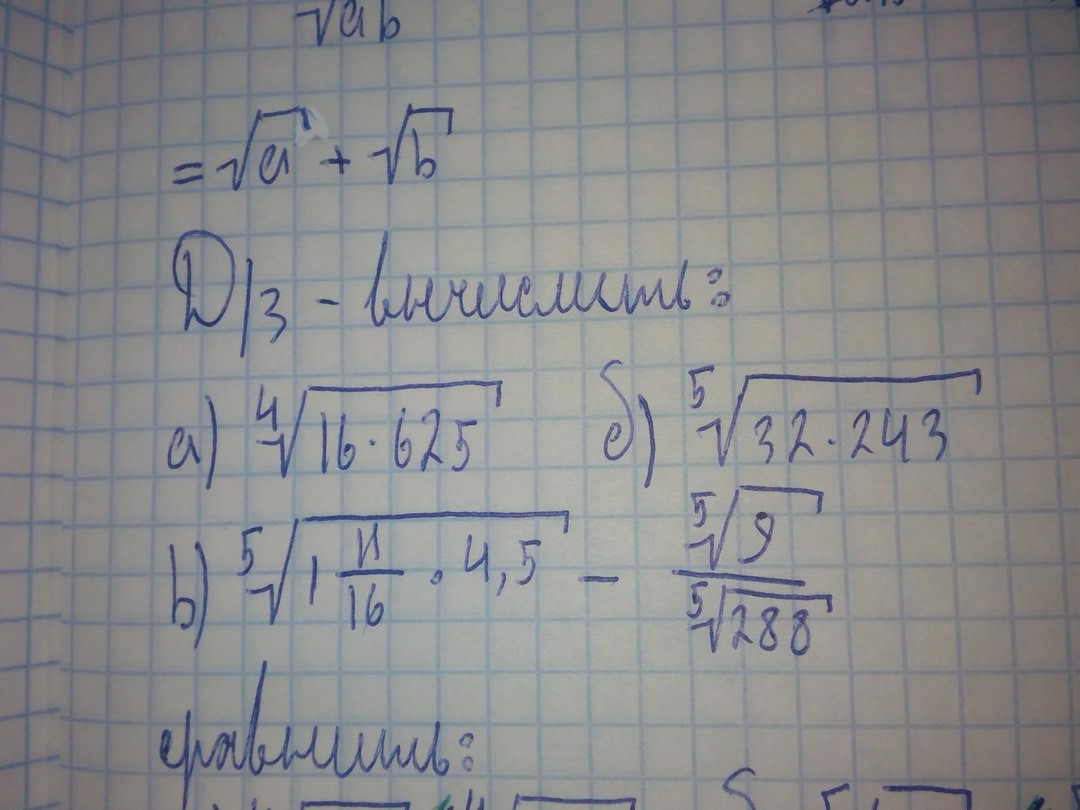 √ab
= √a + √b
Д/з - вычислить:
а) ⁴√16·625 б) ⁵√32·243
в) ⁵√1 11/16 · 4,5 - ⁵√9 / ⁵√288
сравнить: